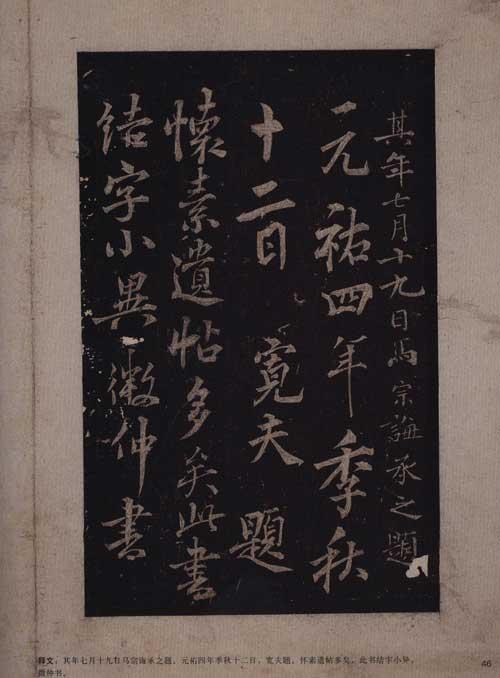 其年七月十九日馬宗誨承之題
元祐四年季秋
十二日 寬夫題
懷素遺帖多矣此書
結字小異 微仲書
释文：其年七月十九日马宗诲承之题。元祐四年季秋十二日，宽夫题。怀素遗帖多矣，此书结字小异，
微仲书。
46